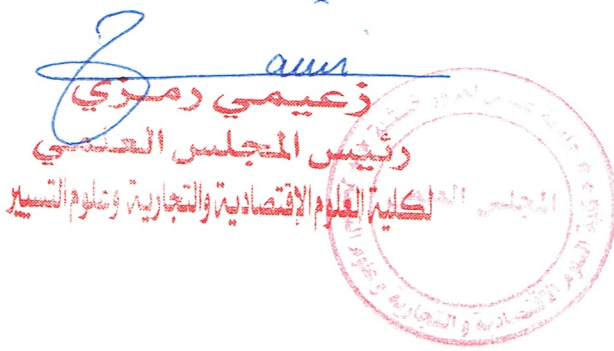 زعيمي رمزي
رئيس المجلس العلمي
لكلية العلوم الإقتصادية والتجارية وعلوم التسيير
المجلس العلمي
كلية العلوم الاقتصادية و التجارية و علوم